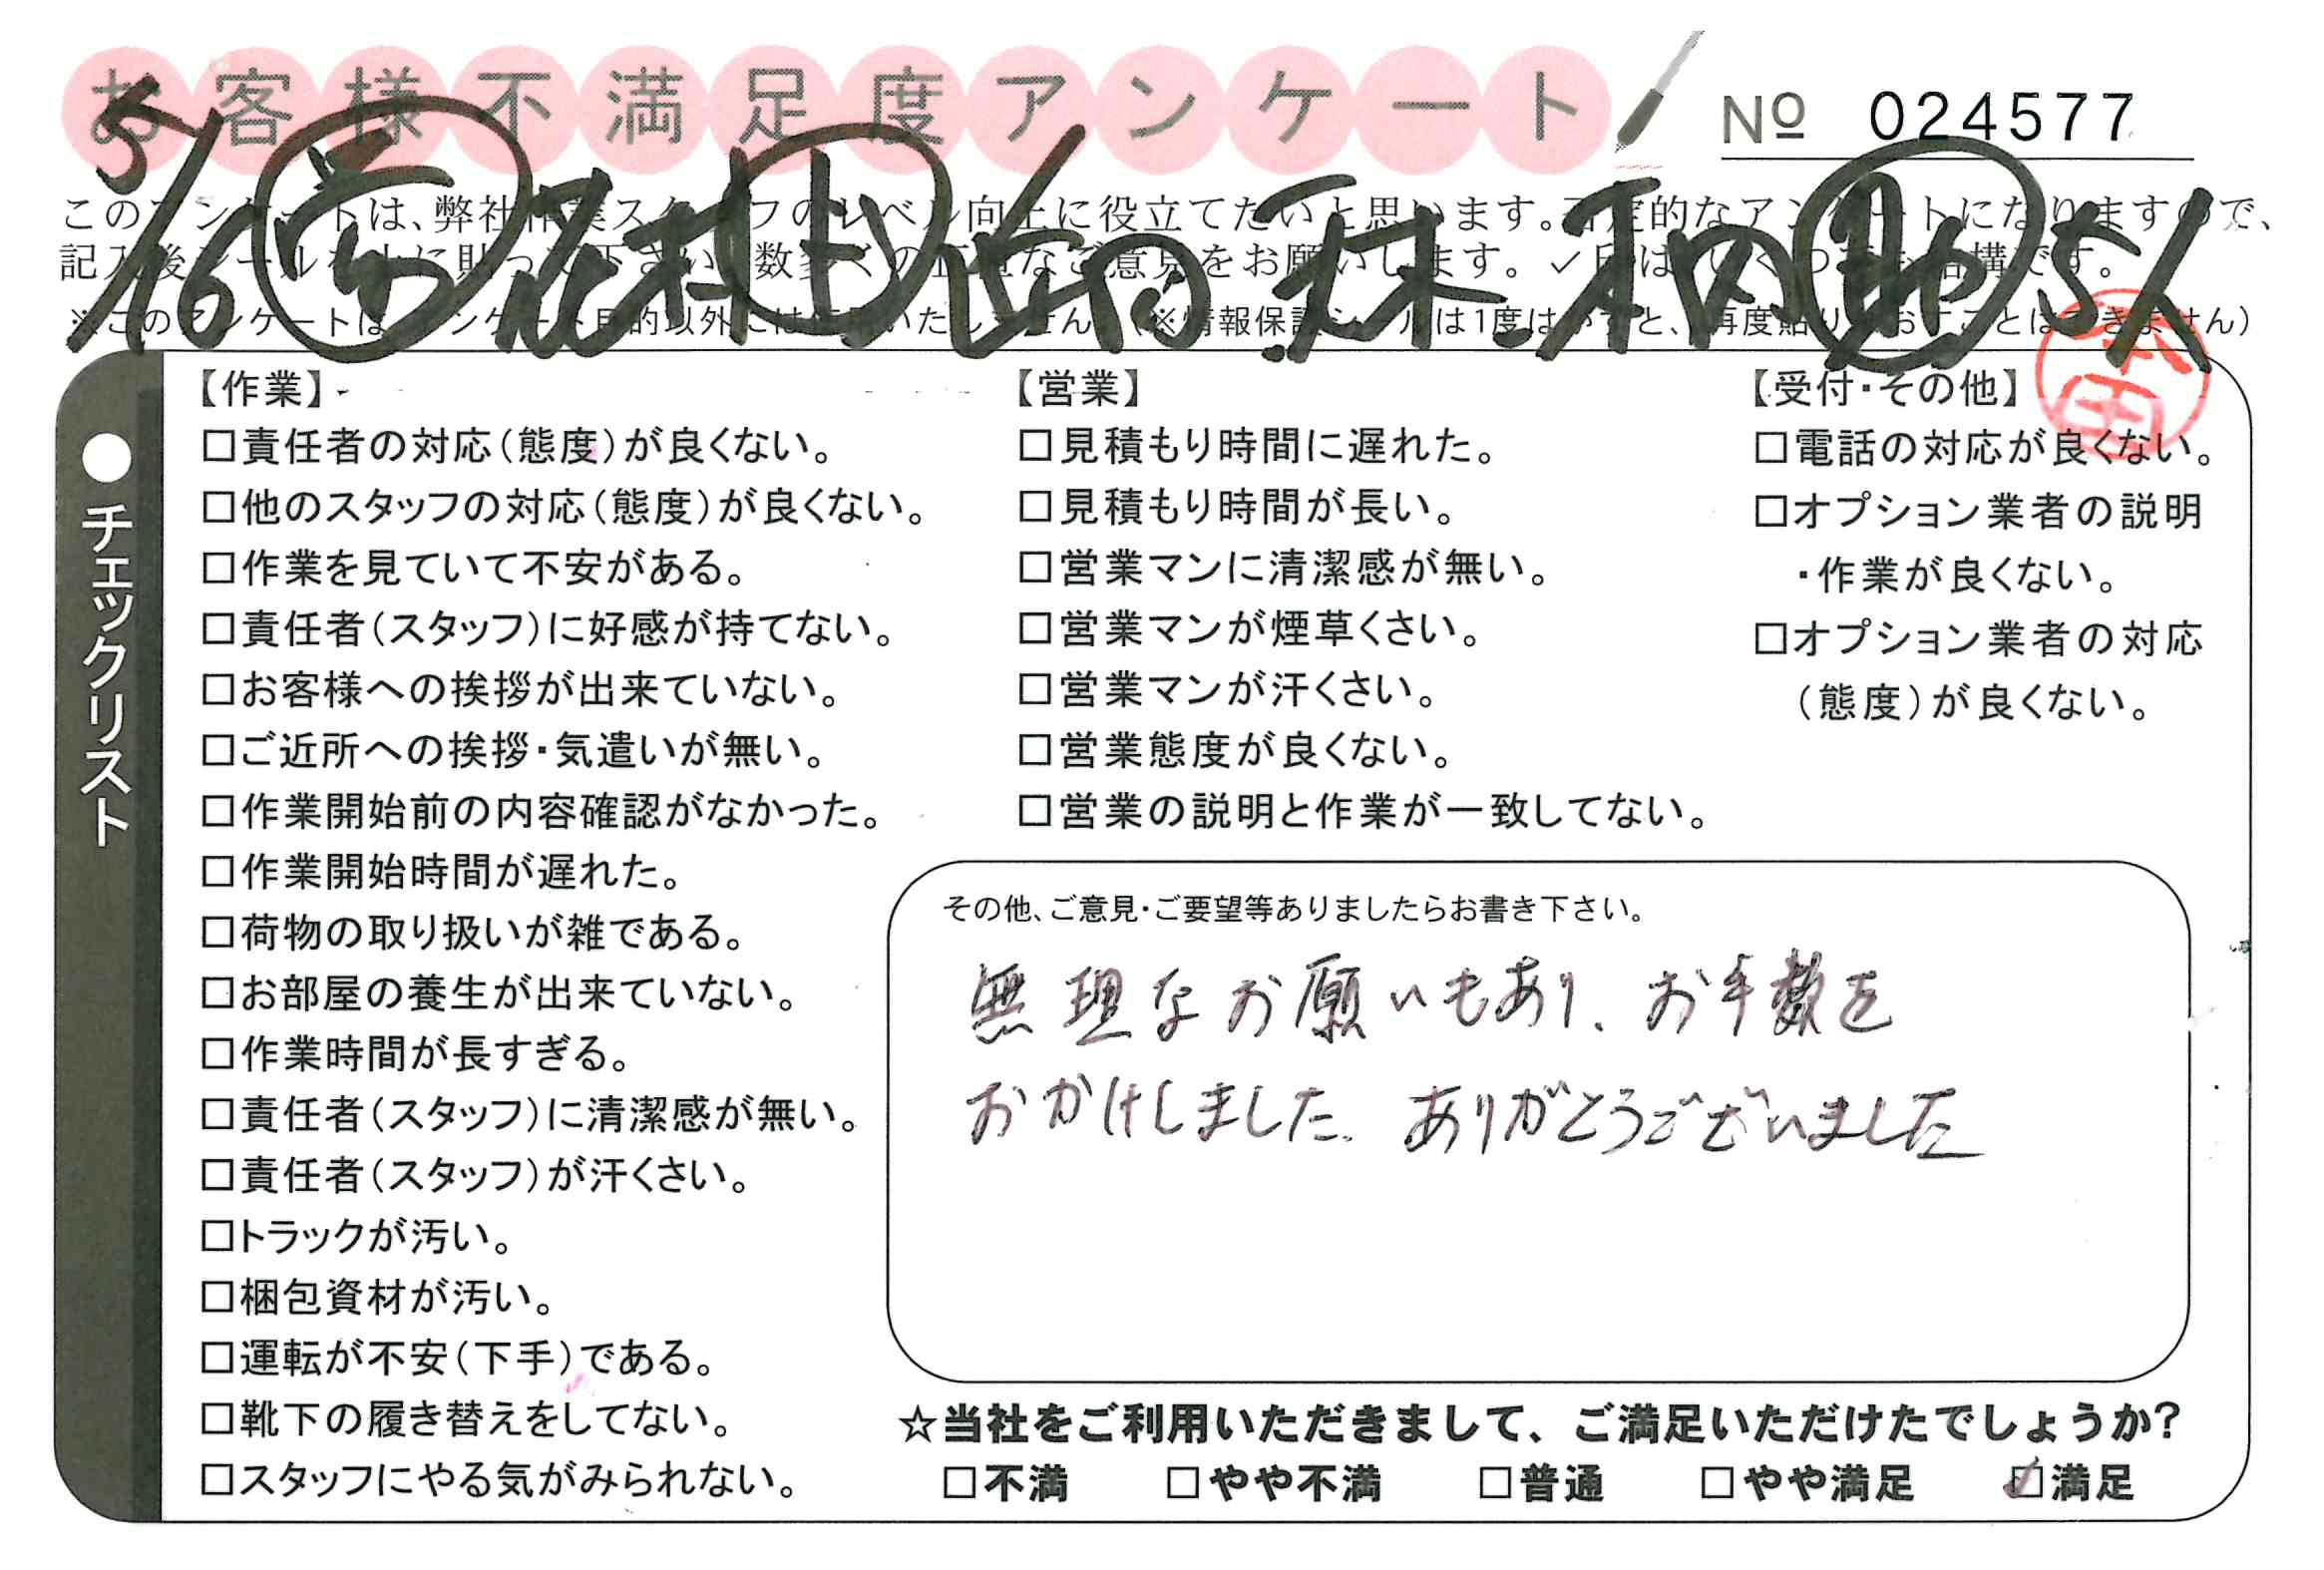 お客様不満足度アンケート
№ 024577
このアンケートは、弊社作業スタッフのレベル向上に役立てたいと思います。否定的なアンケートになりますので、
記入後シールを上に貼って下さい。数多くの正直なご意見をお願いします。✓印はいくつでも結構です。
※このアンケートはアンケート目的以外には使用いたしません。(※情報保護シールは1度はがすと、再度貼りなおすことはできません)
5/16
5/
本田
●チェックリスト
【作業】
□責任者の対応(態度)が良くない。
□他のスタッフの対応(態度)が良くない。
□作業を見ていて不安がある。
□責任者(スタッフ)に好感が持てない。
□お客様への挨拶が出来ていない。
□ご近所への挨拶・気遣いが無い。
□作業開始前の内容確認がなかった。
□作業開始時間が遅れた。
□荷物の取り扱いが雑である。
□お部屋の養生が出来ていない。
□作業時間が長すぎる。
□責任者(スタッフ)に清潔感が無い。
□責任者(スタッフ)が汗くさい。
□トラックが汚い。
□梱包資材が汚い。
□運転が不安(下手)である。
□靴下の履き替えをしてない。
□スタッフにやる気がみられない。
【営業】
□見積もり時間に遅れた。
□見積もり時間が長い。
□営業マンに清潔感が無い。
□営業マンが煙草くさい。
□営業マンが汗くさい。
□営業態度が良くない。
□営業の説明と作業が一致してない。
【受付・その他】
□電話の対応が良くない。
□オプション業者の説明
・作業が良くない。
□オプション業者の対応
(態度)が良くない。
その他、ご意見・ご要望等ありましたらお書き下さい。
無理なお願いもあり、お手数を
おかけしました。ありがとうございました
☆当社をご利用いただきまして、ご満足いただけたでしょうか?
□不満 □やや不満 □普通 □やや満足 ☑満足